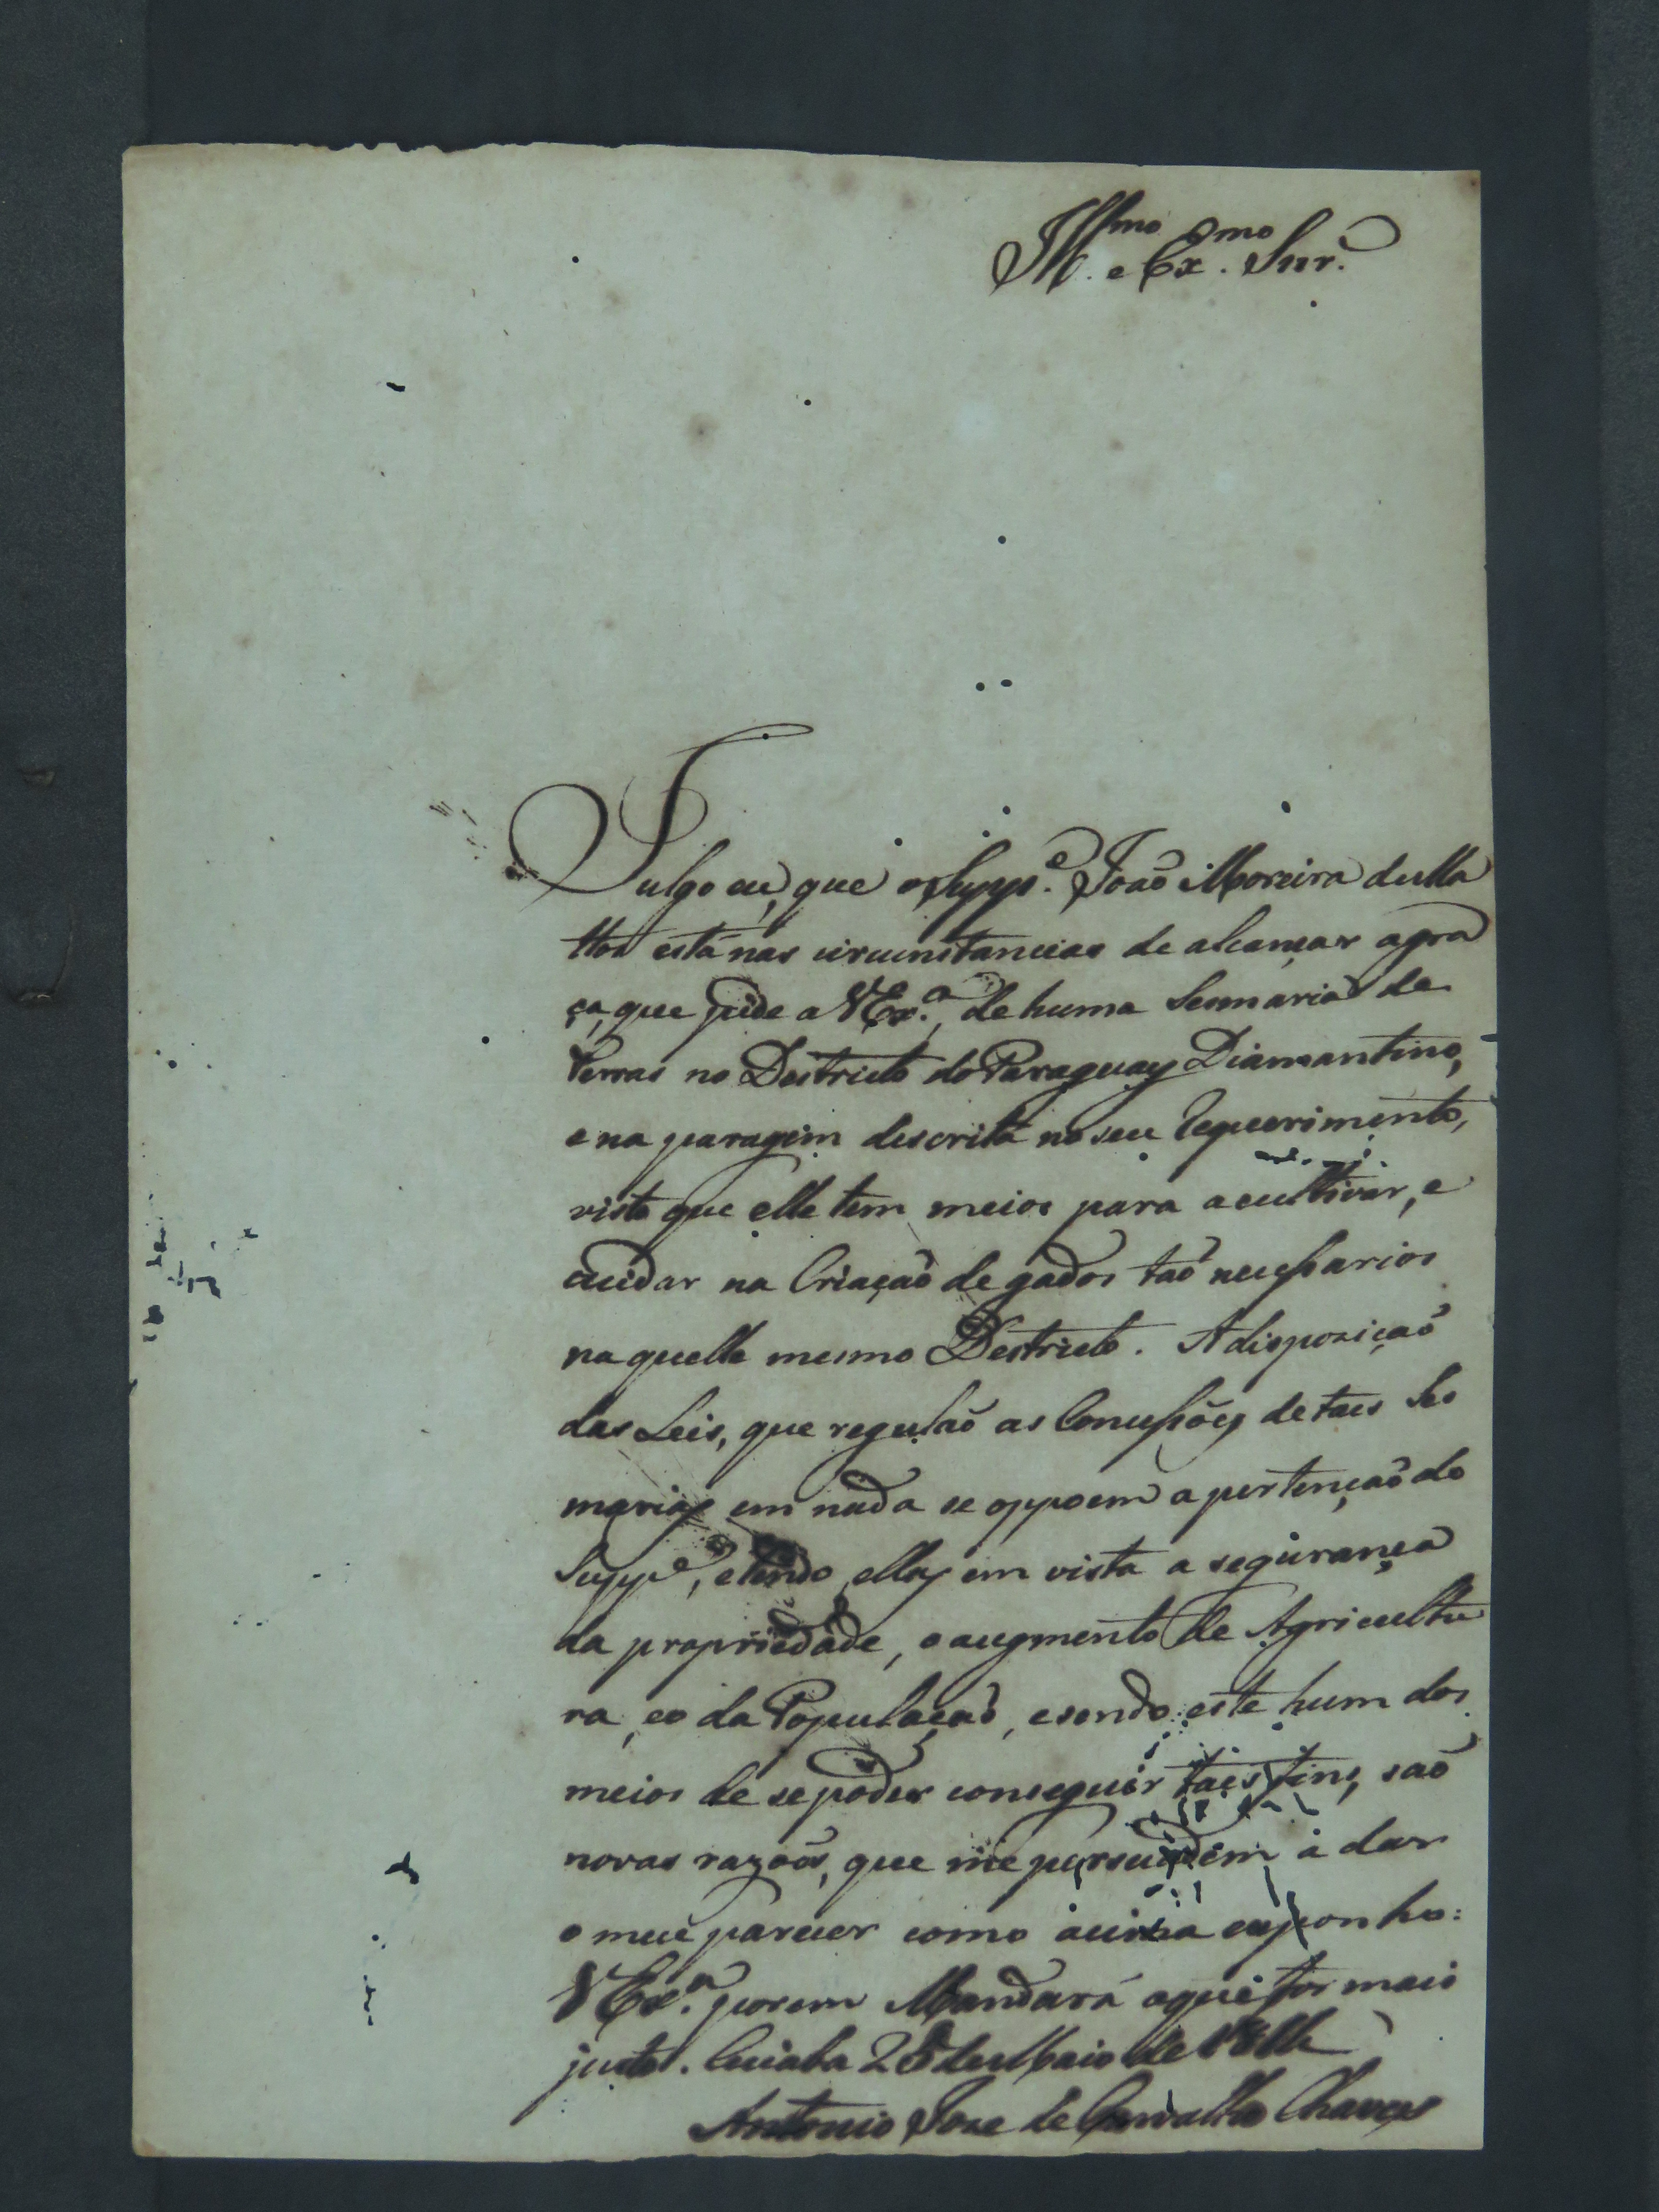 Ill.mo e Ex.mo Snr.
Julgo eu, que o Supp.e João Moreira de Ma
ttos está nas circunstancias de alcançar a gra
ça, que pide a V Ex.a, de huma Sesmaria de
terras no Destricto do Paraguay Diamantino,
e na paragem descrita no seu Requerimento,
visto que elle tem meios para a cultivar, e
cuidar na Criação de gados tão necessarios
naquelle mesmo Destricto. A dispozição
das Leis, que regulão as Concessões de taes Ses
marias em nada se oppoem a pertenção do
Supp.e, e tendo ellas em vista a segurança
da propriedade, o augmento de Agricultu
ra, e o da População, e sendo este hum dos
meios de se poder conseguir taes fins, são
novas razoõs, que me persuadem á dar
o meu parecer como ácima exponho:
V Ex.a porem Mandará o que for mais
justo. Cuiaba 28 de Maio de
Antonio Joze de Carvalho Chaves